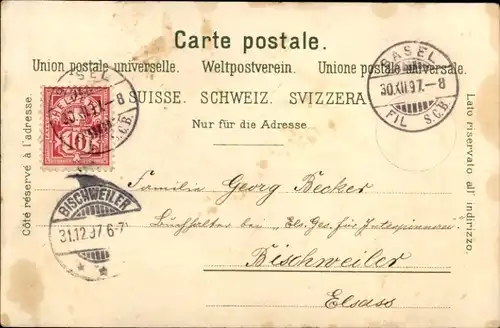 Carte postale.
Union postale universelle. Weltpostverein. Unione postale universale.
SUISSE. SCHWEIZ. SVIZZERA
Nur für die Adresse.
Côté réservé à l'adresse.
Lato riservato all' indirizzo.
BASEL
30.XII.97.-8
FIL S.C.B.
HELVETIA
10
BASEL
-8
S.C.B.
BISCHWEILER
31.12.97 6-7
Familie Georg Becker
Buchhalter bei "El. Ges. für Jutespinnerei"
Bischweiler
Elsass